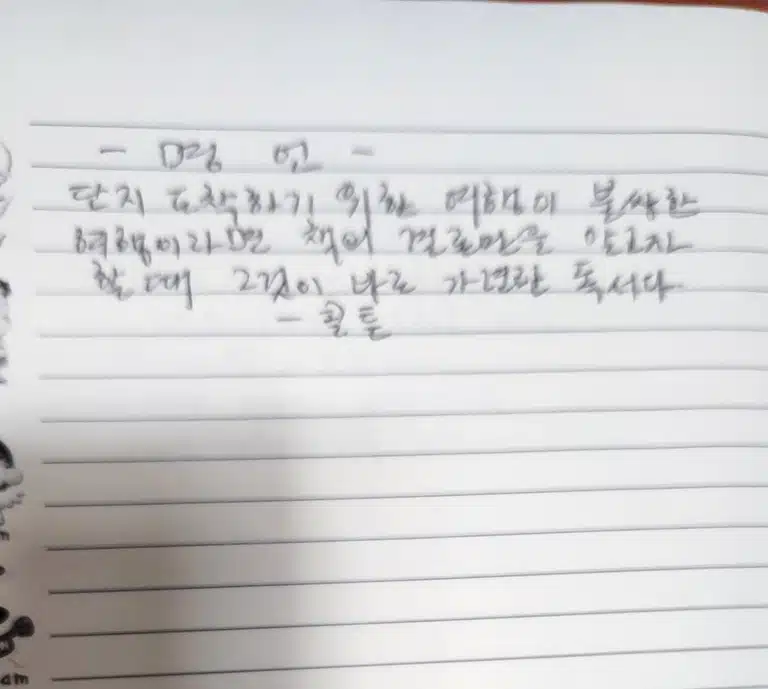 - 명 언 -
단지 도착하기 위한 여행이 불쌍한
여행이라면 책의 결론만을 알고자
할 때 그것이 바로 가련한 독서다
- 콜튼
am